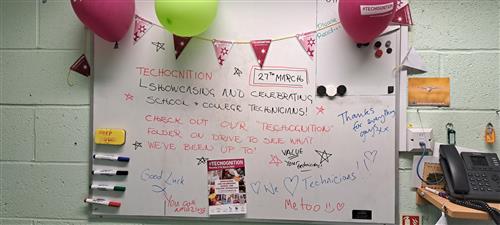 #TECHOGNITION
#TECHOGNITION
TECHOCNITION
27TH MARCH
SHOWCASING AND CELEBRATING
SCHOOL + COLLEGE TECHNICIANS!
CHECK OUT OUR 'TECHOGNITION'
FOLDER ON DRIVE TO SEE WHAT
WE'VE BEEN UP TO!
Thanks
for everything
guys xx
VALUE
Your technicians
#TECHOGNITION
Good Luck
You are
amazing
We ♡ Technicians!
Me too ☺♡